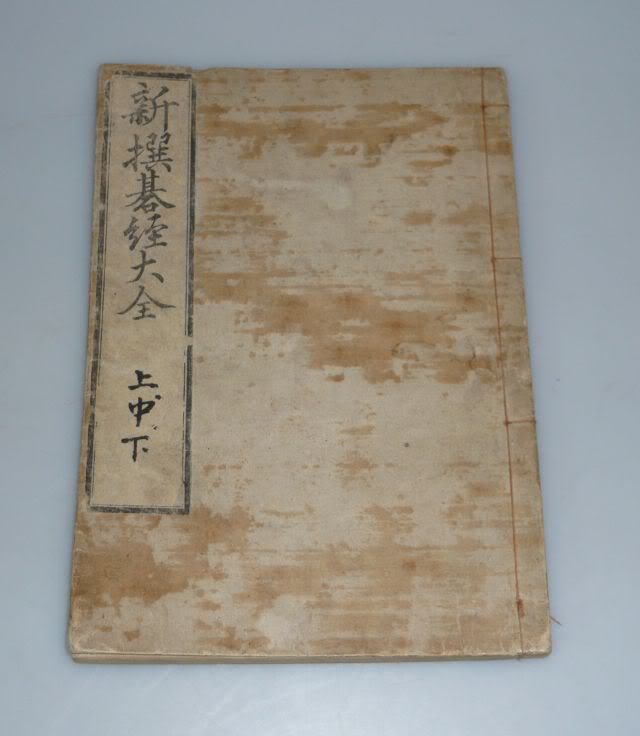 新撰碁經大全
上中下